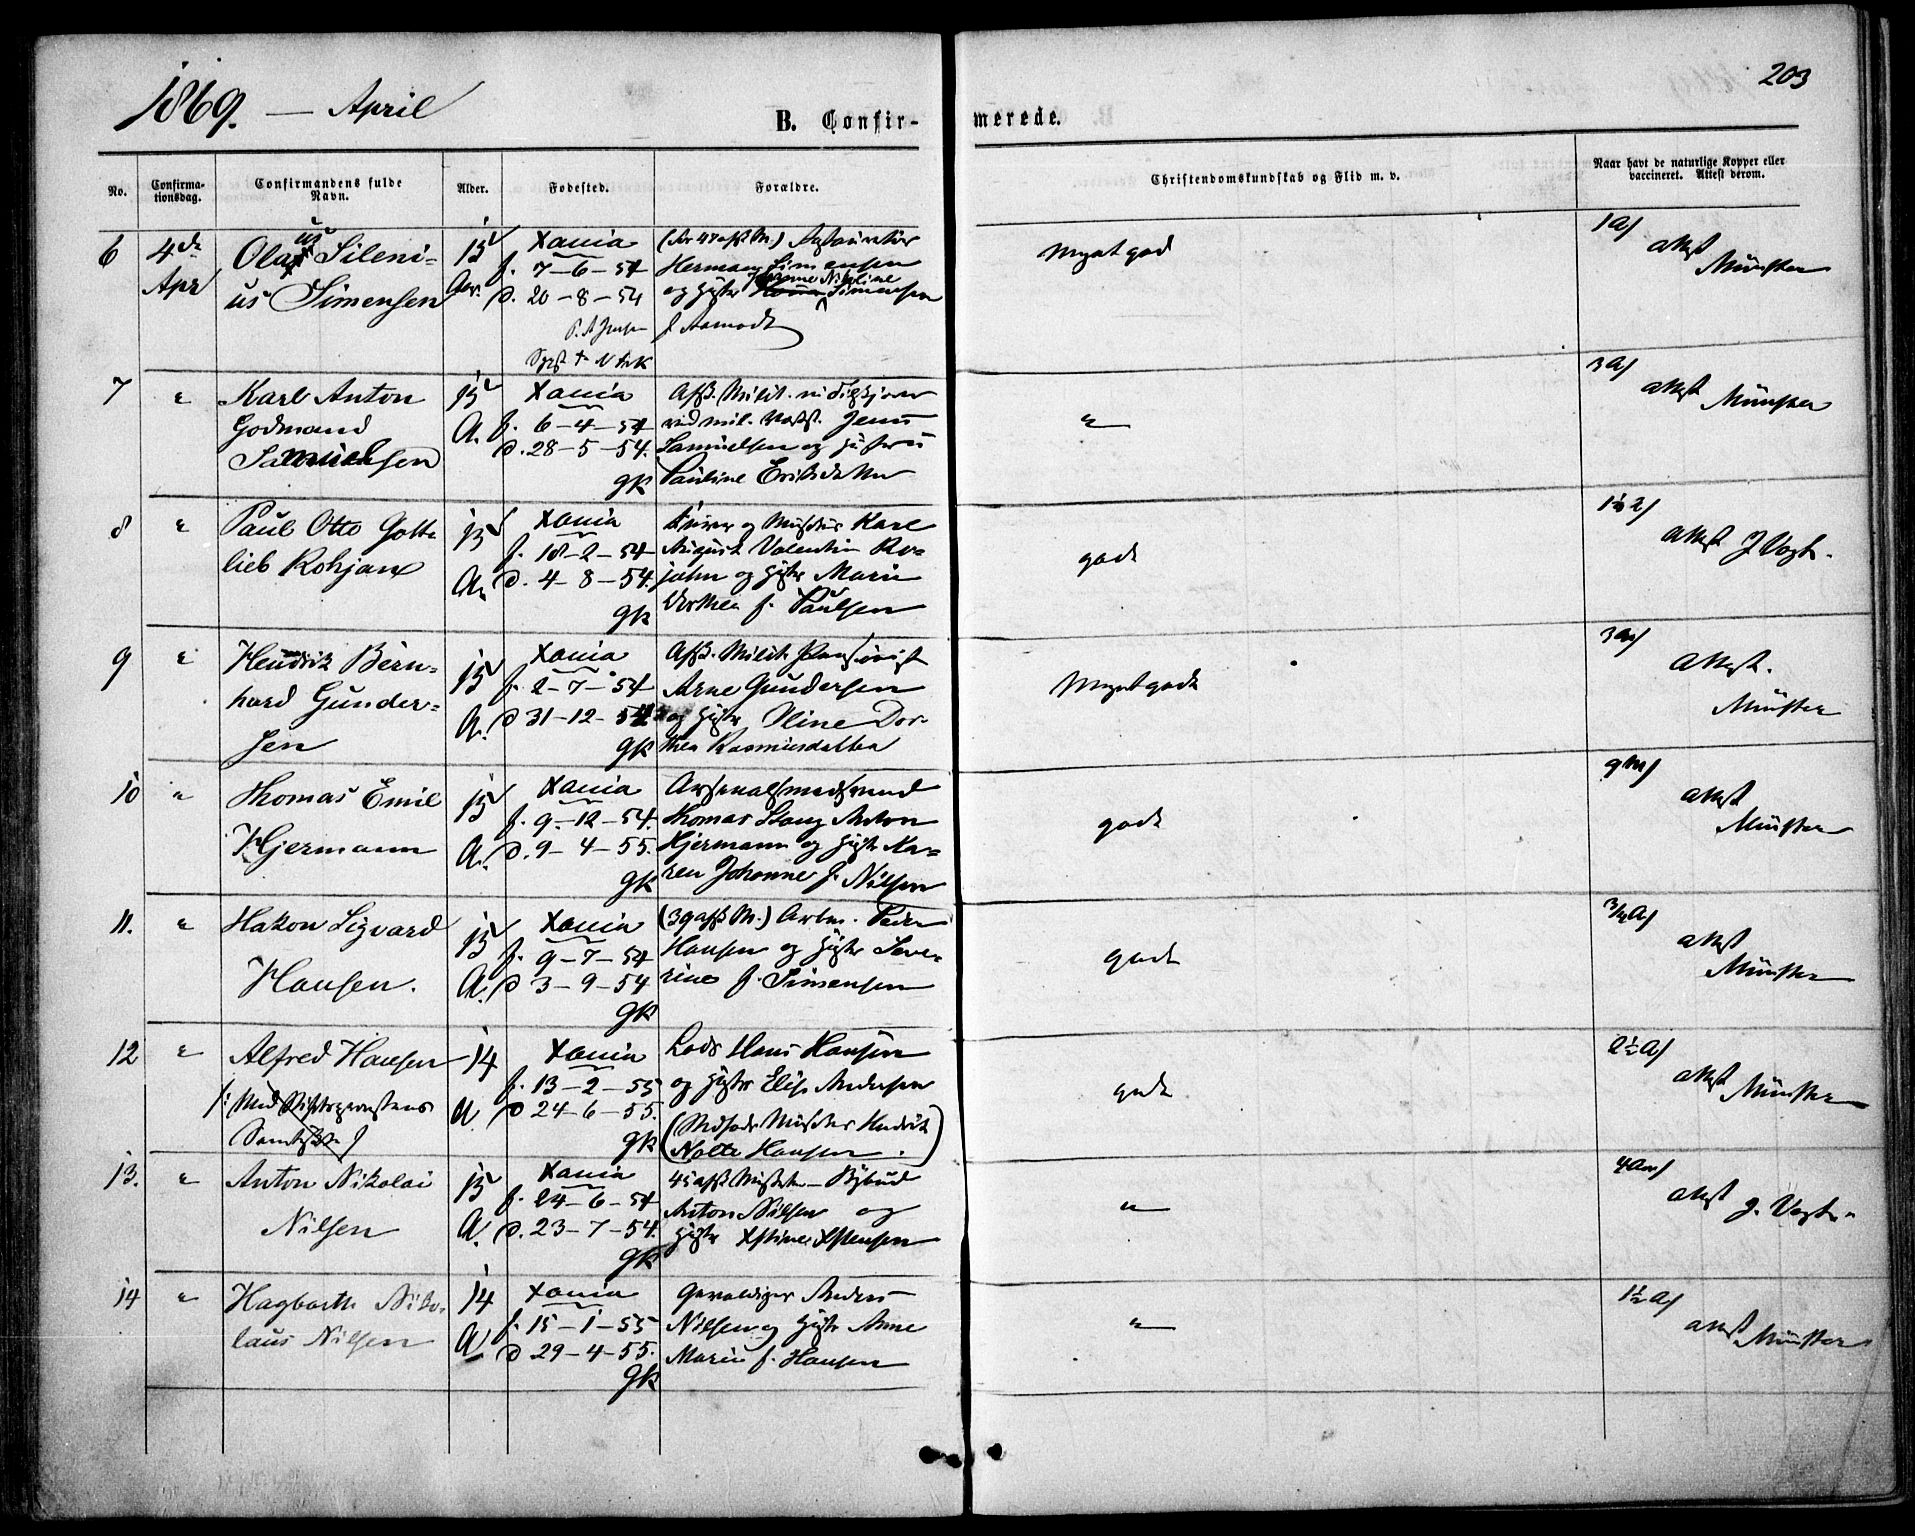 1869. — April
203
B. Confir-
merede.
No.
Confirma-
tionsdag.
Confirmandens fulde
Navn.
Alder.
Fødested.
Forældre.
Christendomskundskab og Flid m. v.
Naar havt de naturlige Kopper eller
vaccineret. Attest derom.
6 4de Apr
Olaus Sileni-
us Simensen
15 Aar.
Xania
f. 7-6-54
d. 20-8-54
Herman Simensen
og Hustr Nikoline Simensen
f. Aamodt
Meget god
1 A/
attest
Münster
7 "
Karl Anton
Godmand
Samuelsen
15 A.
Xania
f. 6-4-54
d. 28-5-54.
gk
Afsk. Milit.
ved mil. Jens
Samuelsen og Hustru
Pauline Eriksdatter
"
3 A/
attest Münster
8 "
Paul Otto Gott-
lieb Rohjan
15 A.
Xania
f. 18-2-54
d. 4-8-54.
gk
og Musiker Karl
August Valentin Ro-
jahn og Hustr Marie
Dorthea f. Paulsen
godt
attest J Vogt.
9 "
Hendrik Bern-
hard Gunder-
sen
15 A.
Xania
f. 2-7-54
d 31-12-54
gk
Afsk. Milit Pensionist
Arne Gundersen
og Hustr Oline Dor-
thea Rasmusdatter
Meget godt
3 Aar/
attest.
Münster
10 "
Thomas Emil
Hjermann
15 A.
Xania
f. 9-12-54.
d. 9-4-55.
gk
Arsenalsmedsvend
Thomas Stang Anton
Hjermann og Hustr Ka-
ren Johanne f. Nilsen
godt
9 M/
attest
Münster
11. "
Hakon Sigvard
Hansen.
15 A.
Xania
f. 9-7-54
d 3-9-54
gk
(39 afsk M.) Arbm. Peder
Hansen og Hustr Seve-
rine f. Simensen
godt
3/4 A/
attest
Münster
12 "
Alfred Hansen
/: Med Stiftsprovstens
Samtykke /
14 A.
Xania
f. 13-2-55
d 24-6-55.
gk
Lods Hans Hansen
og Hustr Elise Andersen
(Stedfader Musiker Hendrik
Nolte Hansen.)
godt
2½ A/
attest Münster
13. "
Anton Nikolai
Nilsen
15 A.
Xania
f. 24-6-54
d. 23-7-54.
gk
45 afsk — Bybud
Anton Nilsen og
Hustr Xstine Xstensen
"
4 Aar/
attest J. Vogt.
14 "
Hagbarth Niko-
laus Nilsen
14 A
Xania
f. 15-1-55
d 29-4-55.
gk
Gevaldiger Anders
Nilsen og Hustr Anne
Marie f. Hansen
"
1½ A/
attest Münster